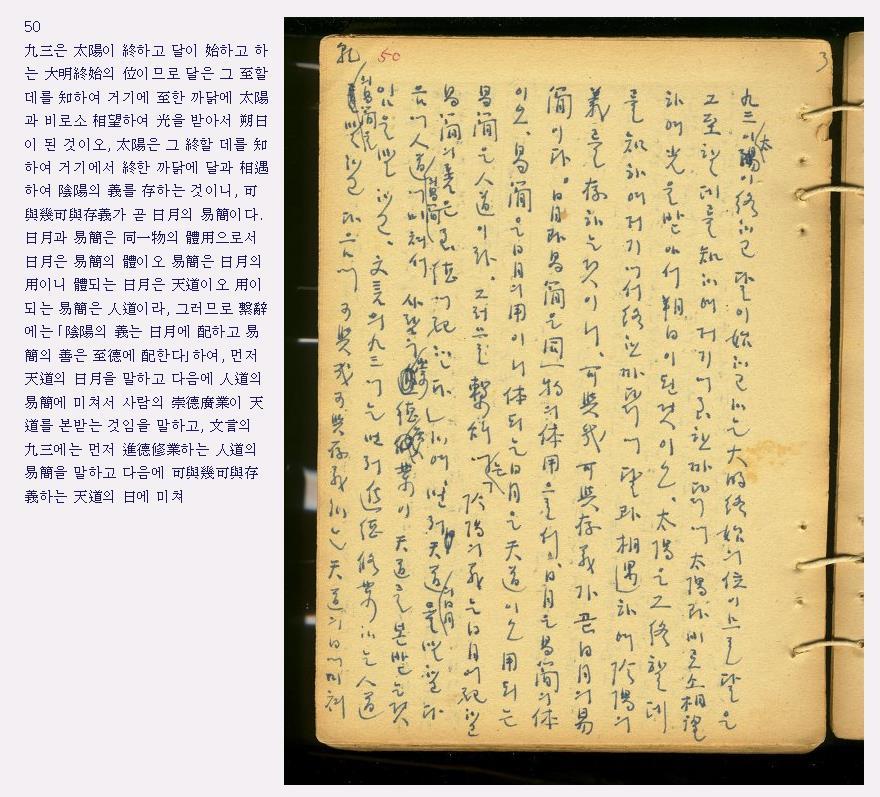 50
九三은 太陽이 終하고 달이 始하고 하
는 大明終始의 位이므로 달은 그 至할
데를 知하여 거기에 至한 까닭에 太陽
과 비로소 相望하여 光을 받아서 朔日
이 된 것이오, 太陽은 그 終할 데를 知
하여 거기에서 終한 까닭에 달과 相遇
하여 陰陽의 義를 存하는 것이니, 可
與幾可與存義가 곧 日月의 易簡이다.
日月과 易簡은 同一物의 體用으로서
日月은 易簡의 體이오 易簡은 日月의
用이니 體되는 日月은 天道이오 用이
되는 易簡은 人道이라, 그러므로 繫辭
에는 「陰陽의 義는 日月에 配하고 易
簡의 善은 至德에 配한다」하여, 먼저
天道의 日月을 말하고 다음에 人道의
易簡에 미쳐서 사람의 崇德廣業이 天
道를 본받는 것임을 말하고, 文言의
九三에는 먼저 進德修業하는 人道의
易簡을 말하고 다음에 可與幾可與存
義하는 天道의 日에 미쳐
3
50
乾
九三이 太陽이 終하고 달이 始하고 하는 大明終始의 位이므로 달은
그 至할 데를 知하여 거기에 至한 까닭에 太陽과 비로소 相望
하여 光을 받아서 朔日이 된 것이오, 太陽은 그 終할 데
를 知하여 거기에서 終한 까닭에 달과 相遇하여 陰陽의
義를 存하는 것이니, 可與幾可與存義가 곧 日月의 易
簡이다. 日月과 易簡은 同一物의 体用으로서, 日月은 易簡의 体
이오, 易簡은 日月의 用이니 体되는 日月은 天道이오 用되는
易簡은 人道이라, 그러므로 繫辭에는 「陰陽의 義는 日月에 配하고
易簡의 善은 至德에 配한다」하여, 먼저 天道의 日月을 말하고 다
음에 人道의 易簡에 미쳐서 사람의 崇德廣業이 天道를 본받는 것
임을 말하고, 文言의 九三에는 먼저 進德修業하는 人道
의 易簡을 말하고 다음에 可與幾可與存義하는 天道의 日에 미쳐